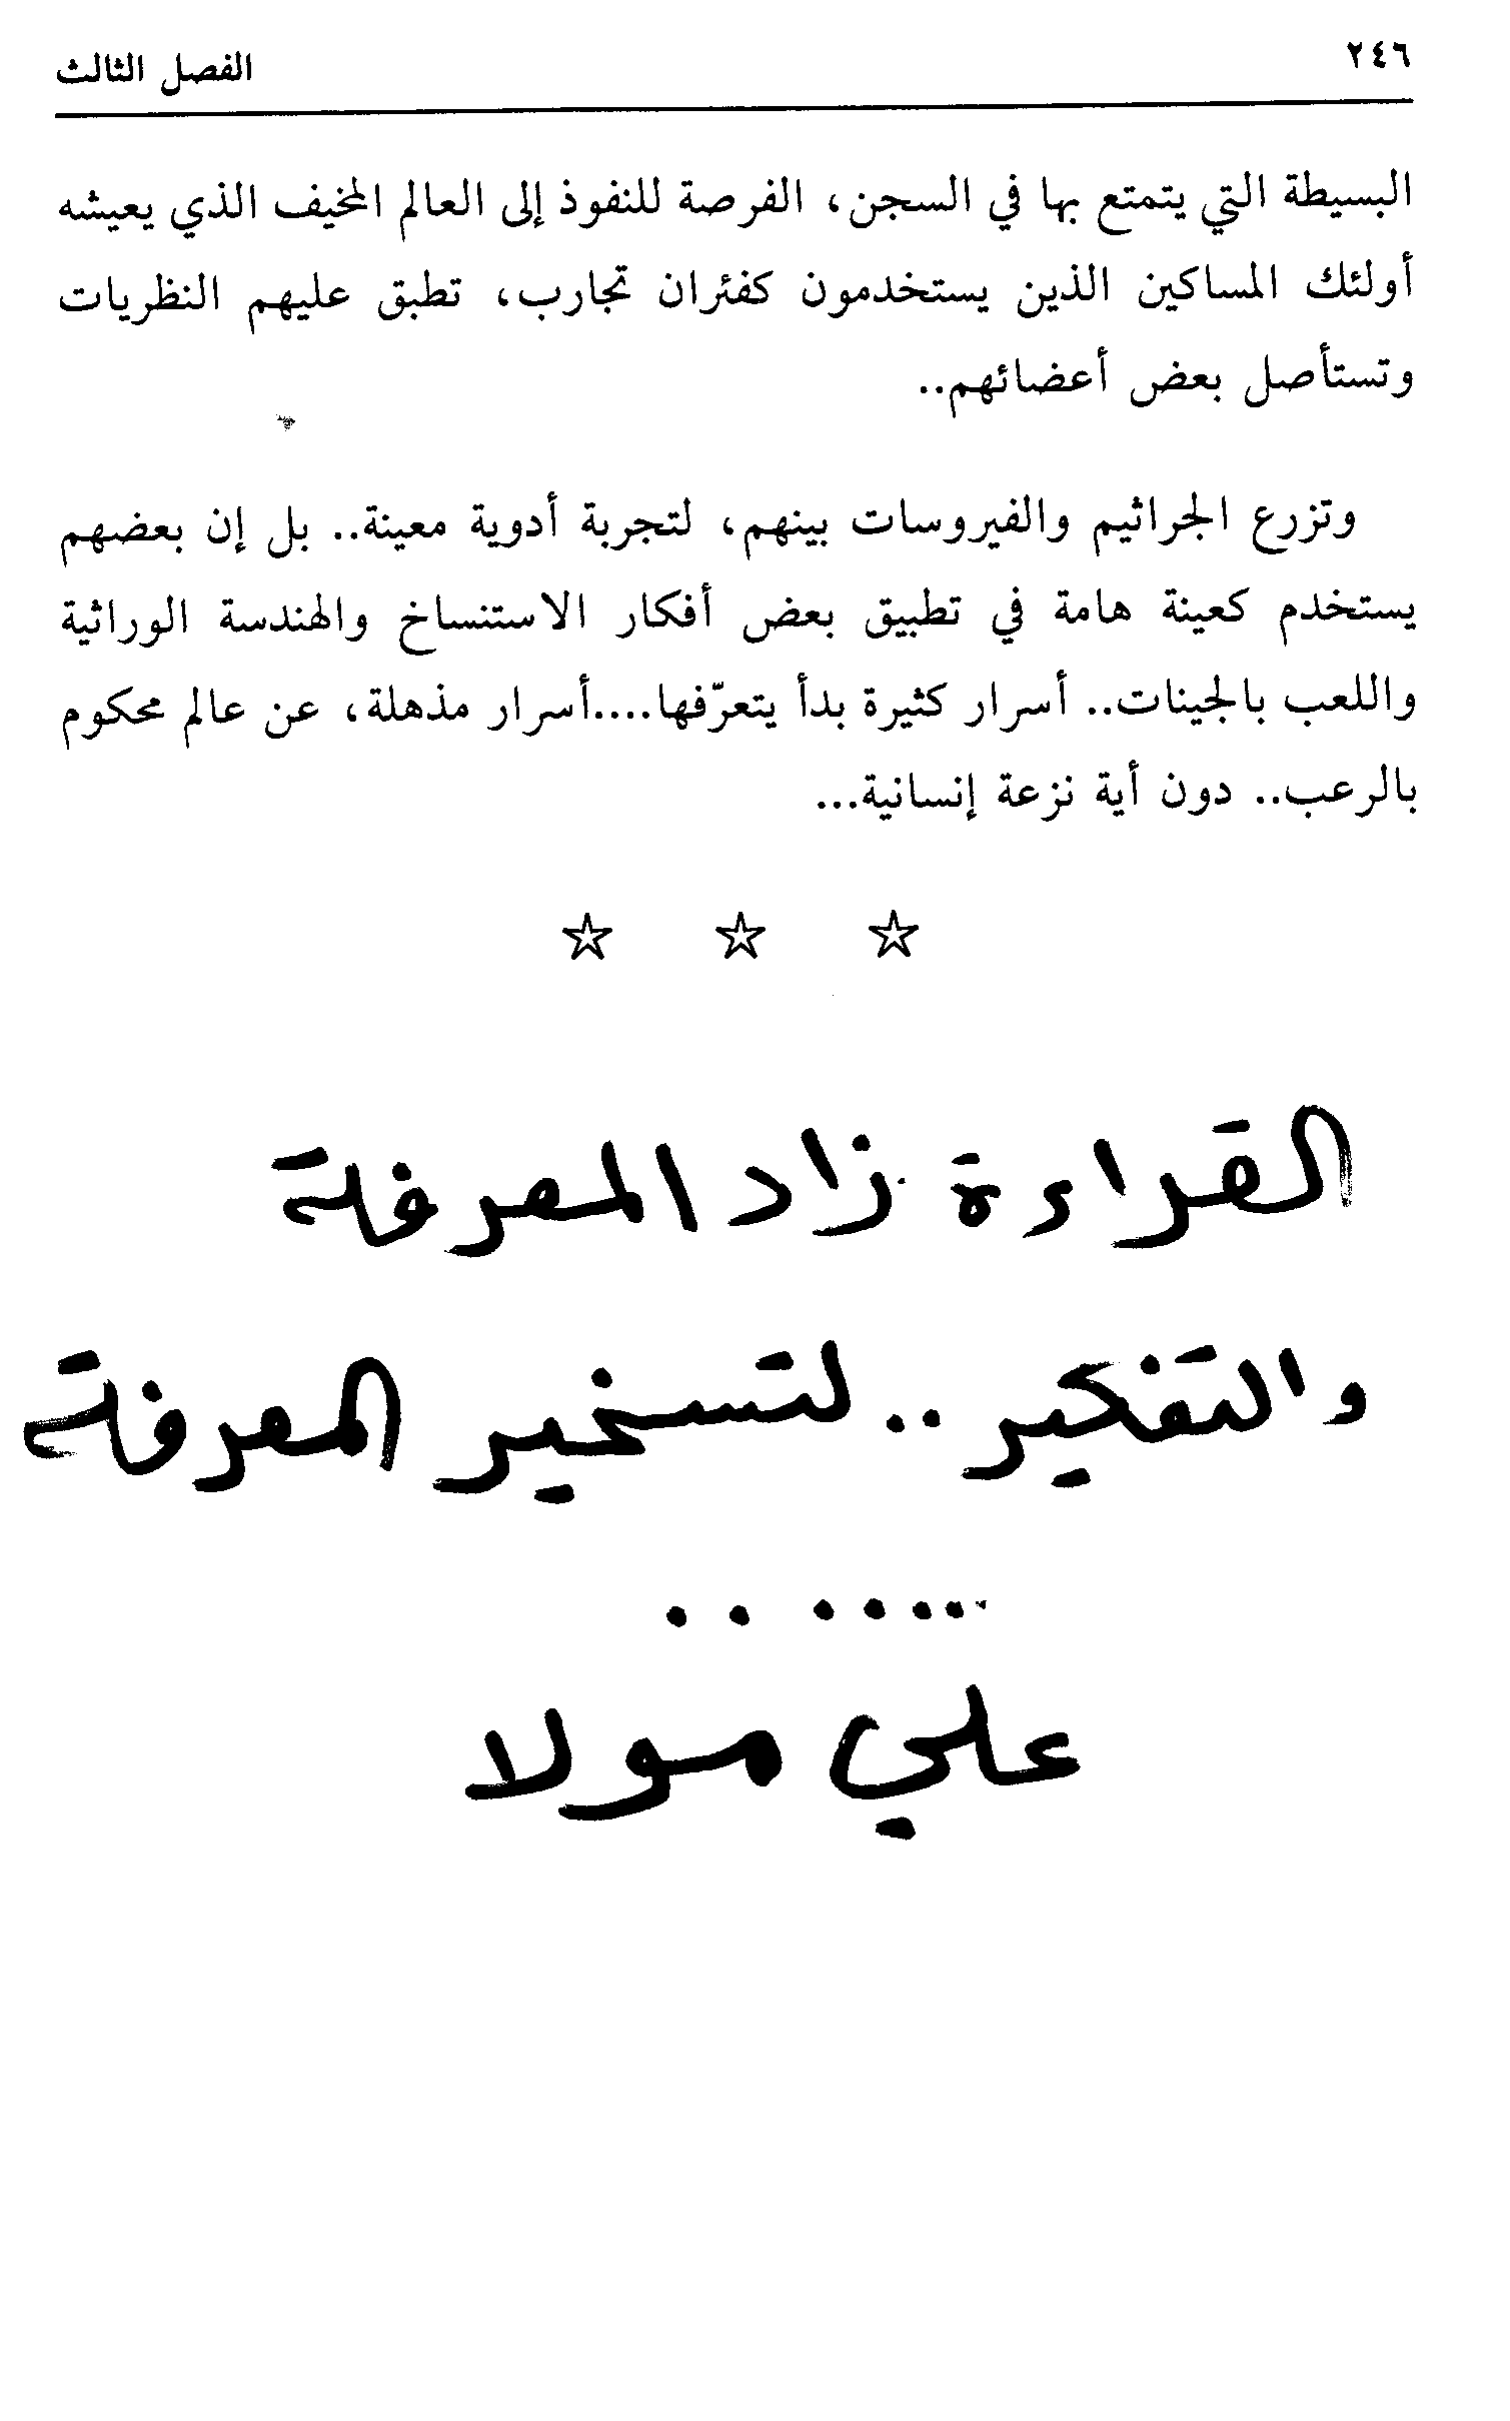 ٢٤٦
الفصل الثالث
البسيطة التي يتمتع بها في السجن، الفرصة للنفوذ إلى العالم المخيف الذي يعيشه
أولئك المساكين الذين يستخدمون كفئران تجارب، تطبق عليهم النظريات
وتستأصل بعض أعضائهم..
وتزرع الجراثيم والفيروسات بينهم، لتجربة أدوية معينة.. بل إن بعضهم
يستخدم كعينة هامة في تطبيق بعض أفكار الاستنساخ والهندسة الوراثية
واللعب بالجينات.. أسرار كثيرة بدأ يتعرّفها....أسرار مذهلة، عن عالم محكوم
بالرعب.. دون أية نزعة إنسانية...
☆ ☆ ☆
القراءة زاد المعرفة
والتفكير .. لتسخير المعرفة
.......
علي مولا